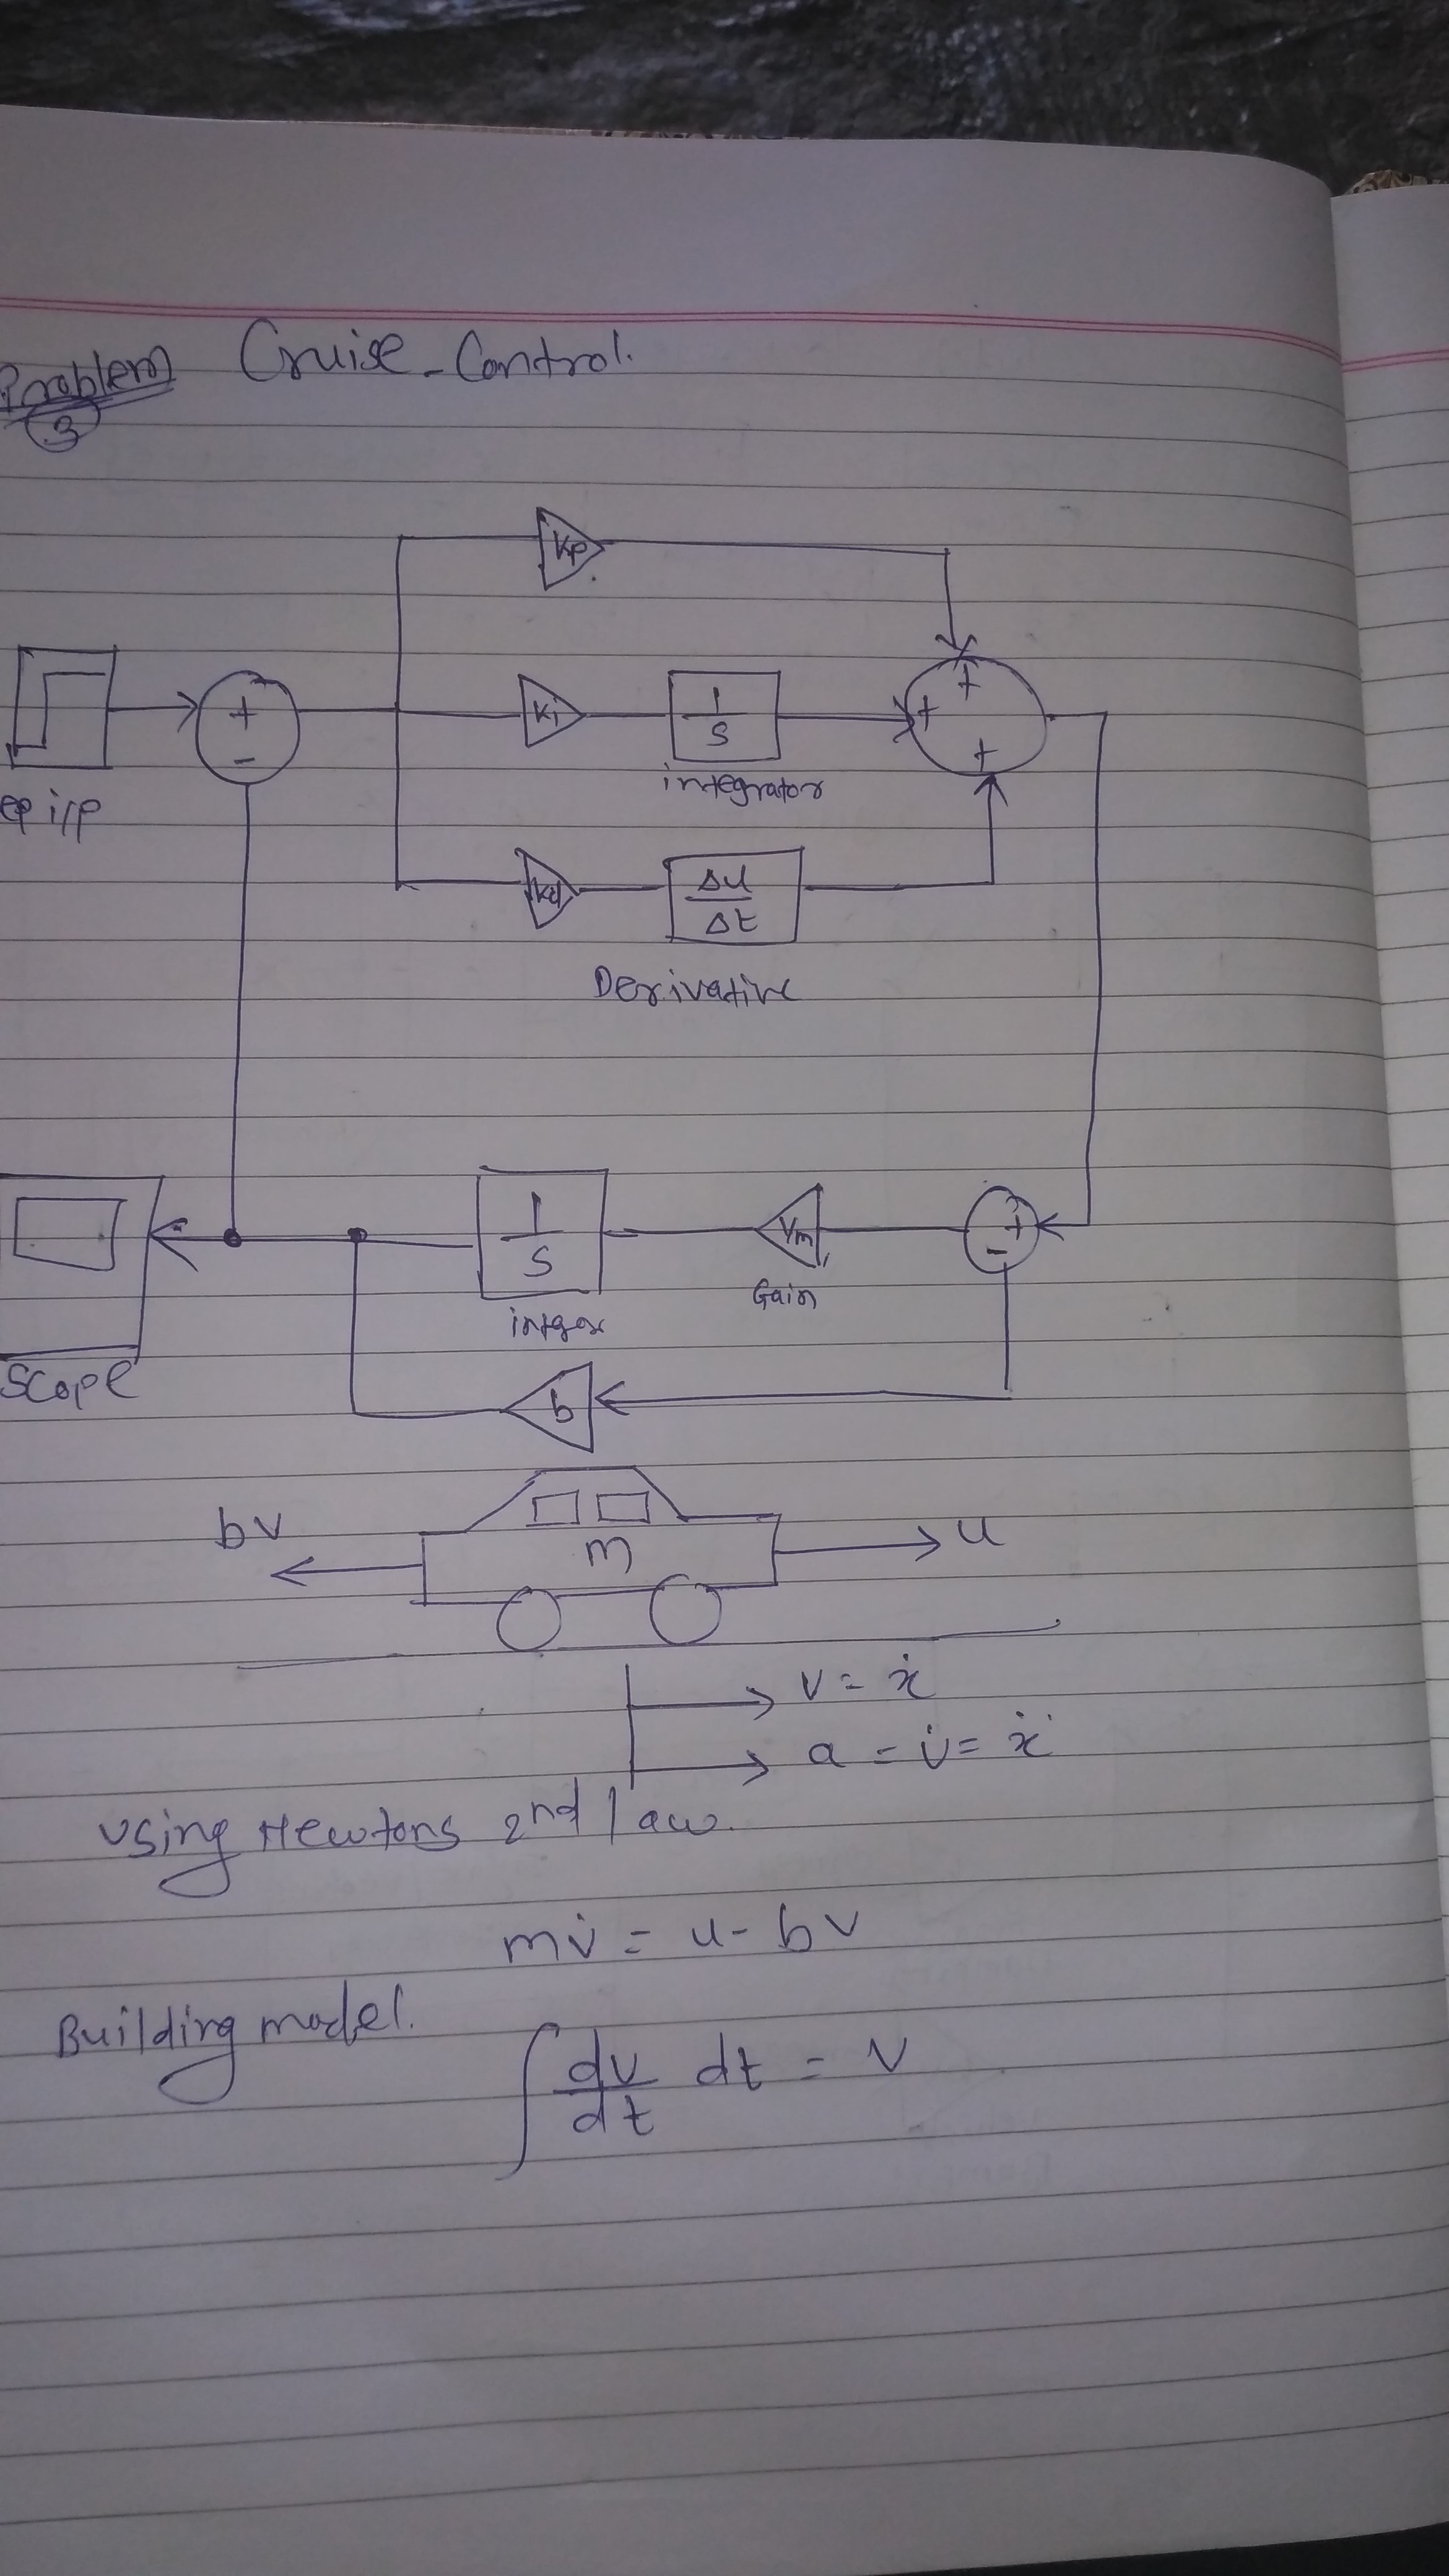 Problem Cruise-Control.
3
Kp
+
-
Ki
1/s
+
+
+
integrator
ep i/p
Kd
Δu/Δt
Derivative
1/s
+
-
Gain
integr
b
Scope
bv
m
u
v = ẋ
a = v̇ = ẍ
Using Newtons 2nd law.
mv̇ = u - bv
Building model.
∫ dv/dt dt = v